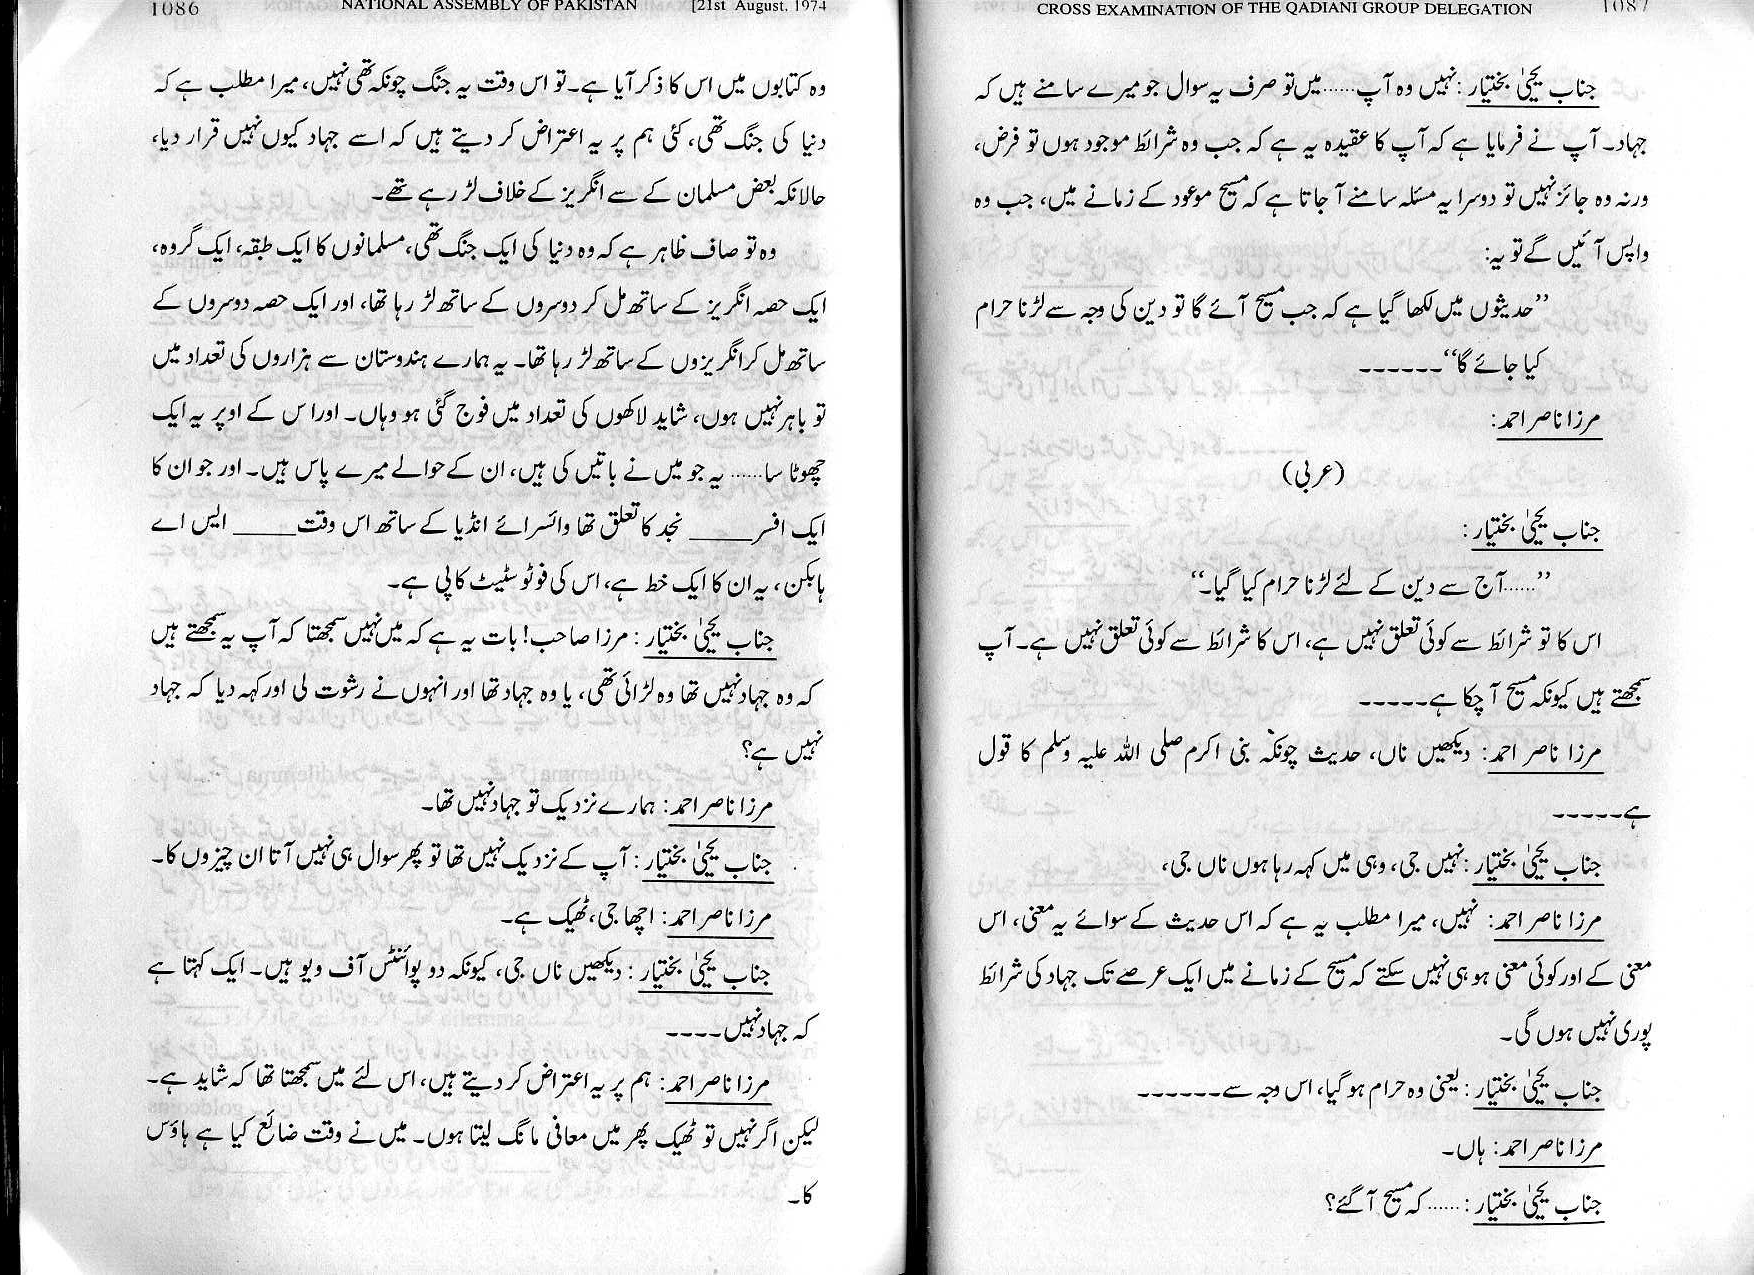 1086 NATIONAL ASSEMBLY OF PAKISTAN [21st August, 1974
وہ کتابوں میں اس کا ذکر آیا ہے۔ تو اس وقت یہ جنگ چونکہ تھی نہیں، میرا مطلب ہے کہ
دنیا کی جنگ تھی، کئی ہم پر یہ اعتراض کر دیتے ہیں کہ اسے جہاد کیوں نہیں قرار دیا،
حالانکہ بعض مسلمان کے سے انگریز کے خلاف لڑ رہے تھے۔
وہ تو صاف ظاہر ہے کہ وہ دنیا کی ایک جنگ تھی، مسلمانوں کا ایک طبقہ، ایک گروہ،
ایک حصہ انگریز کے ساتھ مل کر دوسروں کے ساتھ لڑ رہا تھا، اور ایک حصہ دوسروں کے
ساتھ مل کر انگریزوں کے ساتھ لڑ رہا تھا۔ یہ ہمارے ہندوستان سے ہزاروں کی تعداد میں
تو باہر نہیں ہوں، شاید لاکھوں کی تعداد میں فوج گئی ہو وہاں۔ اور اس کے اوپر یہ ایک
چھوٹا سا...... یہ جو میں نے باتیں کی ہیں، ان کے حوالے میرے پاس ہیں۔ اور جو ان کا
ایک افسر_____ نجد کا تعلق تھا وائسرائے انڈیا کے ساتھ اس وقت_____ ایس اے
ہابکن، یہ ان کا ایک خط ہے، اس کی فوٹو سٹیٹ کاپی ہے۔
جناب یحییٰ بختیار: مرزا صاحب! بات یہ ہے کہ میں نہیں سمجھتا کہ آپ یہ سمجھتے ہیں
کہ وہ جہاد نہیں تھا وہ لڑائی تھی، یا وہ جہاد تھا اور انہوں نے رشوت لی اور کہہ دیا کہ جہاد
نہیں ہے؟
مرزا ناصر احمد: ہمارے نزدیک تو جہاد نہیں تھا۔
جناب یحییٰ بختیار: آپ کے نزدیک نہیں تھا تو پھر سوال ہی نہیں آتا ان چیزوں کا۔
مرزا ناصر احمد: اچھا جی، ٹھیک ہے۔
جناب یحییٰ بختیار: دیکھیں ناں جی، کیونکہ دو پوائنٹس آف ویو ہیں۔ ایک کہتا ہے
کہ جہاد نہیں۔۔۔۔
مرزا ناصر احمد: ہم پر یہ اعتراض کر دیتے ہیں، اس لئے میں سمجھتا تھا کہ شاید ہے۔
لیکن اگر نہیں تو ٹھیک پھر میں معافی مانگ لیتا ہوں۔ میں نے وقت ضائع کیا ہے ہاؤس
کا۔
CROSS EXAMINATION OF THE QADIANI GROUP DELEGATION 1087
جناب یحییٰ بختیار: نہیں وہ آپ...... میں تو صرف یہ سوال جو میرے سامنے ہیں کہ
جہاد۔ آپ نے فرمایا ہے کہ آپ کا عقیدہ یہ ہے کہ جب وہ شرائط موجود ہوں تو فرض،
ورنہ وہ جائز نہیں تو دوسرا یہ مسئلہ سامنے آ جاتا ہے کہ مسیح موعود کے زمانے میں، جب وہ
واپس آئیں گے تو یہ:
”حدیثوں میں لکھا گیا ہے کہ جب مسیح آئے گا تو دین کی وجہ سے لڑنا حرام
کیا جائے گا“۔۔۔۔۔۔
مرزا ناصر احمد:
(عربی)
جناب یحییٰ بختیار:
”......آج سے دین کے لئے لڑنا حرام کیا گیا۔“
اس کا تو شرائط سے کوئی تعلق نہیں ہے، اس کا شرائط سے کوئی تعلق نہیں ہے۔ آپ
سمجھتے ہیں کیونکہ مسیح آ چکا ہے۔۔۔۔۔
مرزا ناصر احمد: دیکھیں ناں، حدیث چونکہ بنی اکرم صلی اللہ علیہ وسلم کا قول
ہے۔۔۔۔۔
جناب یحییٰ بختیار: نہیں جی، وہی میں کہہ رہا ہوں ناں جی،
مرزا ناصر احمد: نہیں، میرا مطلب یہ ہے کہ اس حدیث کے سوائے یہ معنی، اس
معنی کے اور کوئی معنی ہو ہی نہیں سکتے کہ مسیح کے زمانے میں ایک عرصے تک جہاد کی شرائط
پوری نہیں ہوں گی۔
جناب یحییٰ بختیار: یعنی وہ حرام ہو گیا، اس وجہ سے۔۔۔۔۔۔
مرزا ناصر احمد: ہاں۔
جناب یحییٰ بختیار: ...... کہ مسیح آ گئے؟